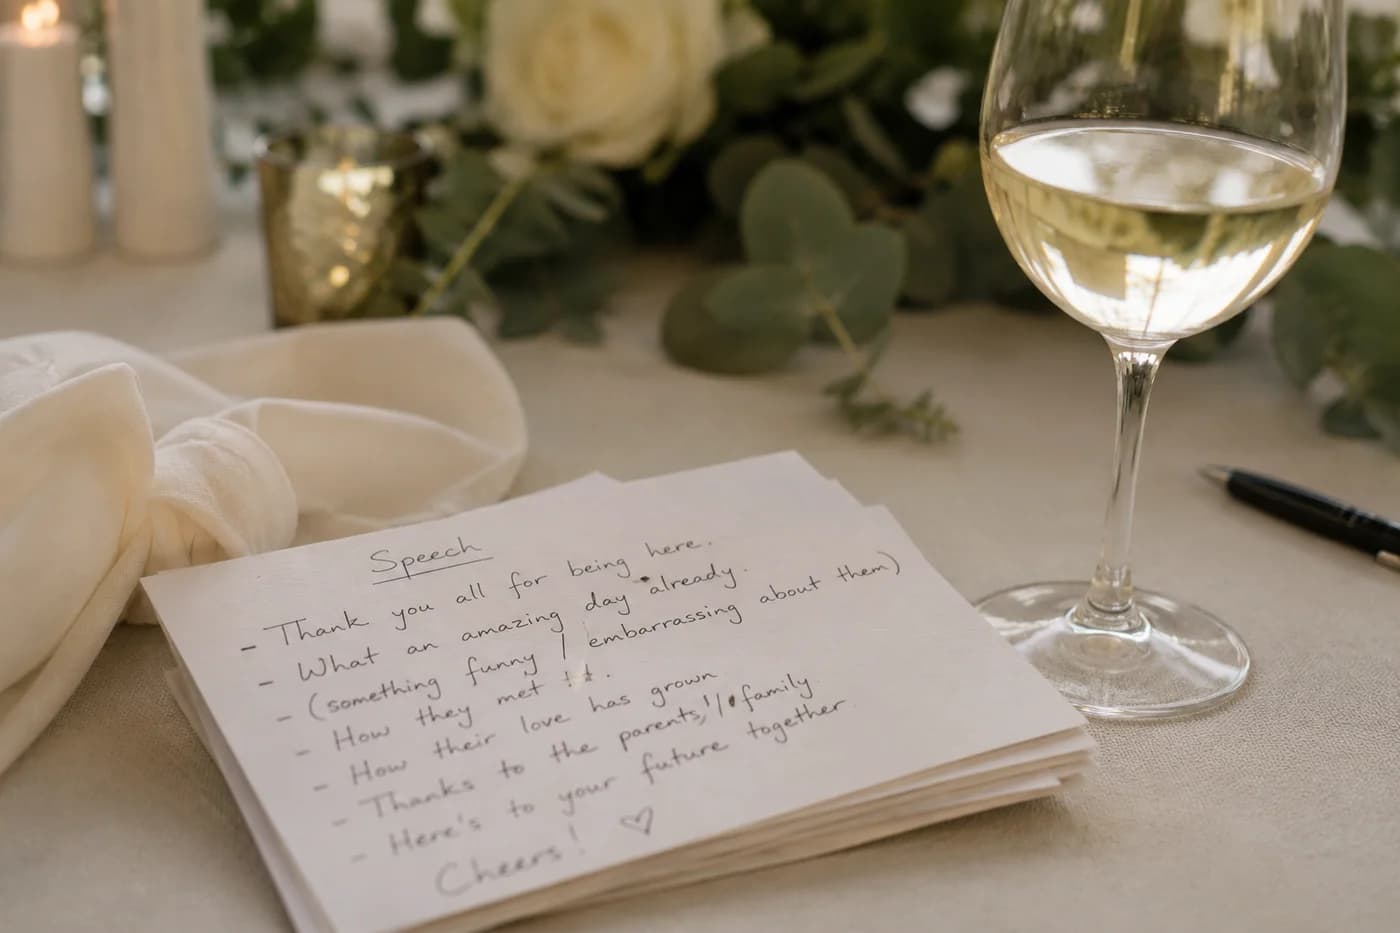 Speech
- Thank you all for being here.
- What an amazing day already.
- (something funny / embarrassing about them)
- How they met
- How their love has grown
- Thanks to the parents / family
- Here's to your future together
Cheers! ♡